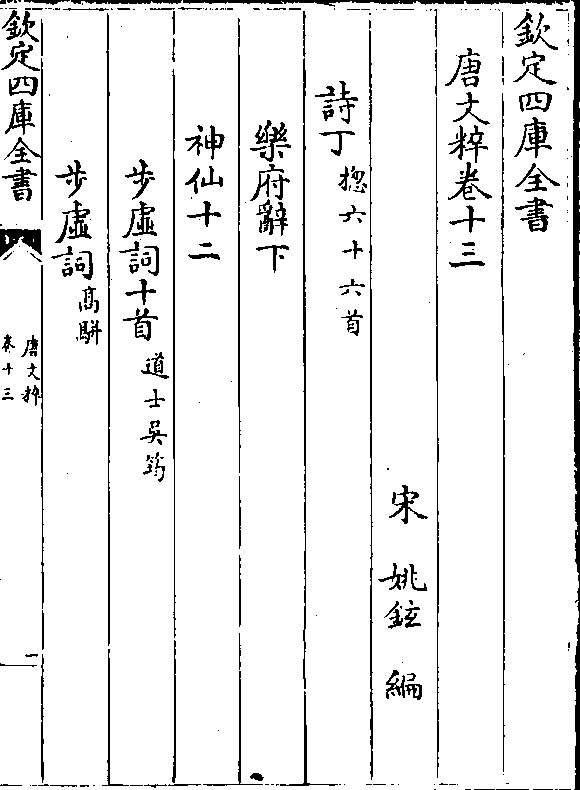 欽定四庫全書
唐文粹卷十三
宋 姚鉉 編
詩丁 揔六十六首
樂府辭下
神仙十二
步虛詞十首 道士吳筠
步虛詞 高駢
欽定四庫全書
唐文粹
卷十三
一